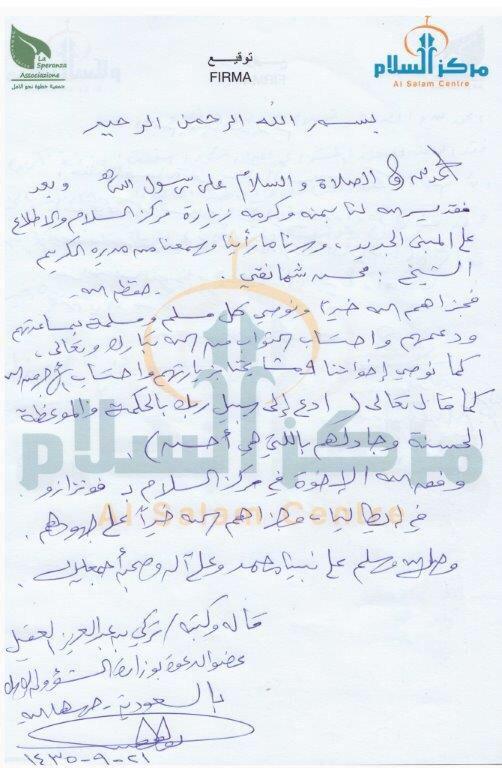 La
Speranza
Associazione
جمعية خطوة نحو الامل
توقيع
FIRMA
مركز السلام
Al Salam Centre
بسم الله الرحمن الرحيم
الحمد لله والصلاة والسلام على رسول الله وبعد
فقد يسر الله لنا بمنه وكرمه زيارة مركز السلام والاطلاع
على المبنى الجديد، وسرنا ما رأينا وسمعنا من مديره الكريم
الشيخ: محسن شمانقي.
حفظه الله.
فجزاهم الله خيراً ونوصي كل مسلم ومسلمة بمساعدتهم
ودعمهم واحتساب الثواب من الله تبارك وتعالى.
كما نوصي إخواننا بزيارتهم واحتساب
كما قال تعالى (ادع إلى سبيل ربك بالحكمة والموعظة
الحسنة وجادلهم باللتي هي أحسن).
وفق الله الإخوة في مركز السلام بـ فونترازو.
في إيطاليا، وجزاهم الله خيراً على جهودهم.
وصلى الله وسلم على نبينا محمد وعلى آله وصحبه أجمعين.
قاله وكتبه/ تركي بن عبدالعزيز العقيل
عضو الدعوة بوزارة الشؤون الإسلامية
بالسعودية - حرسها الله
٢١-٩-١٤٣٥
مركز السلام
Al Salam Centre